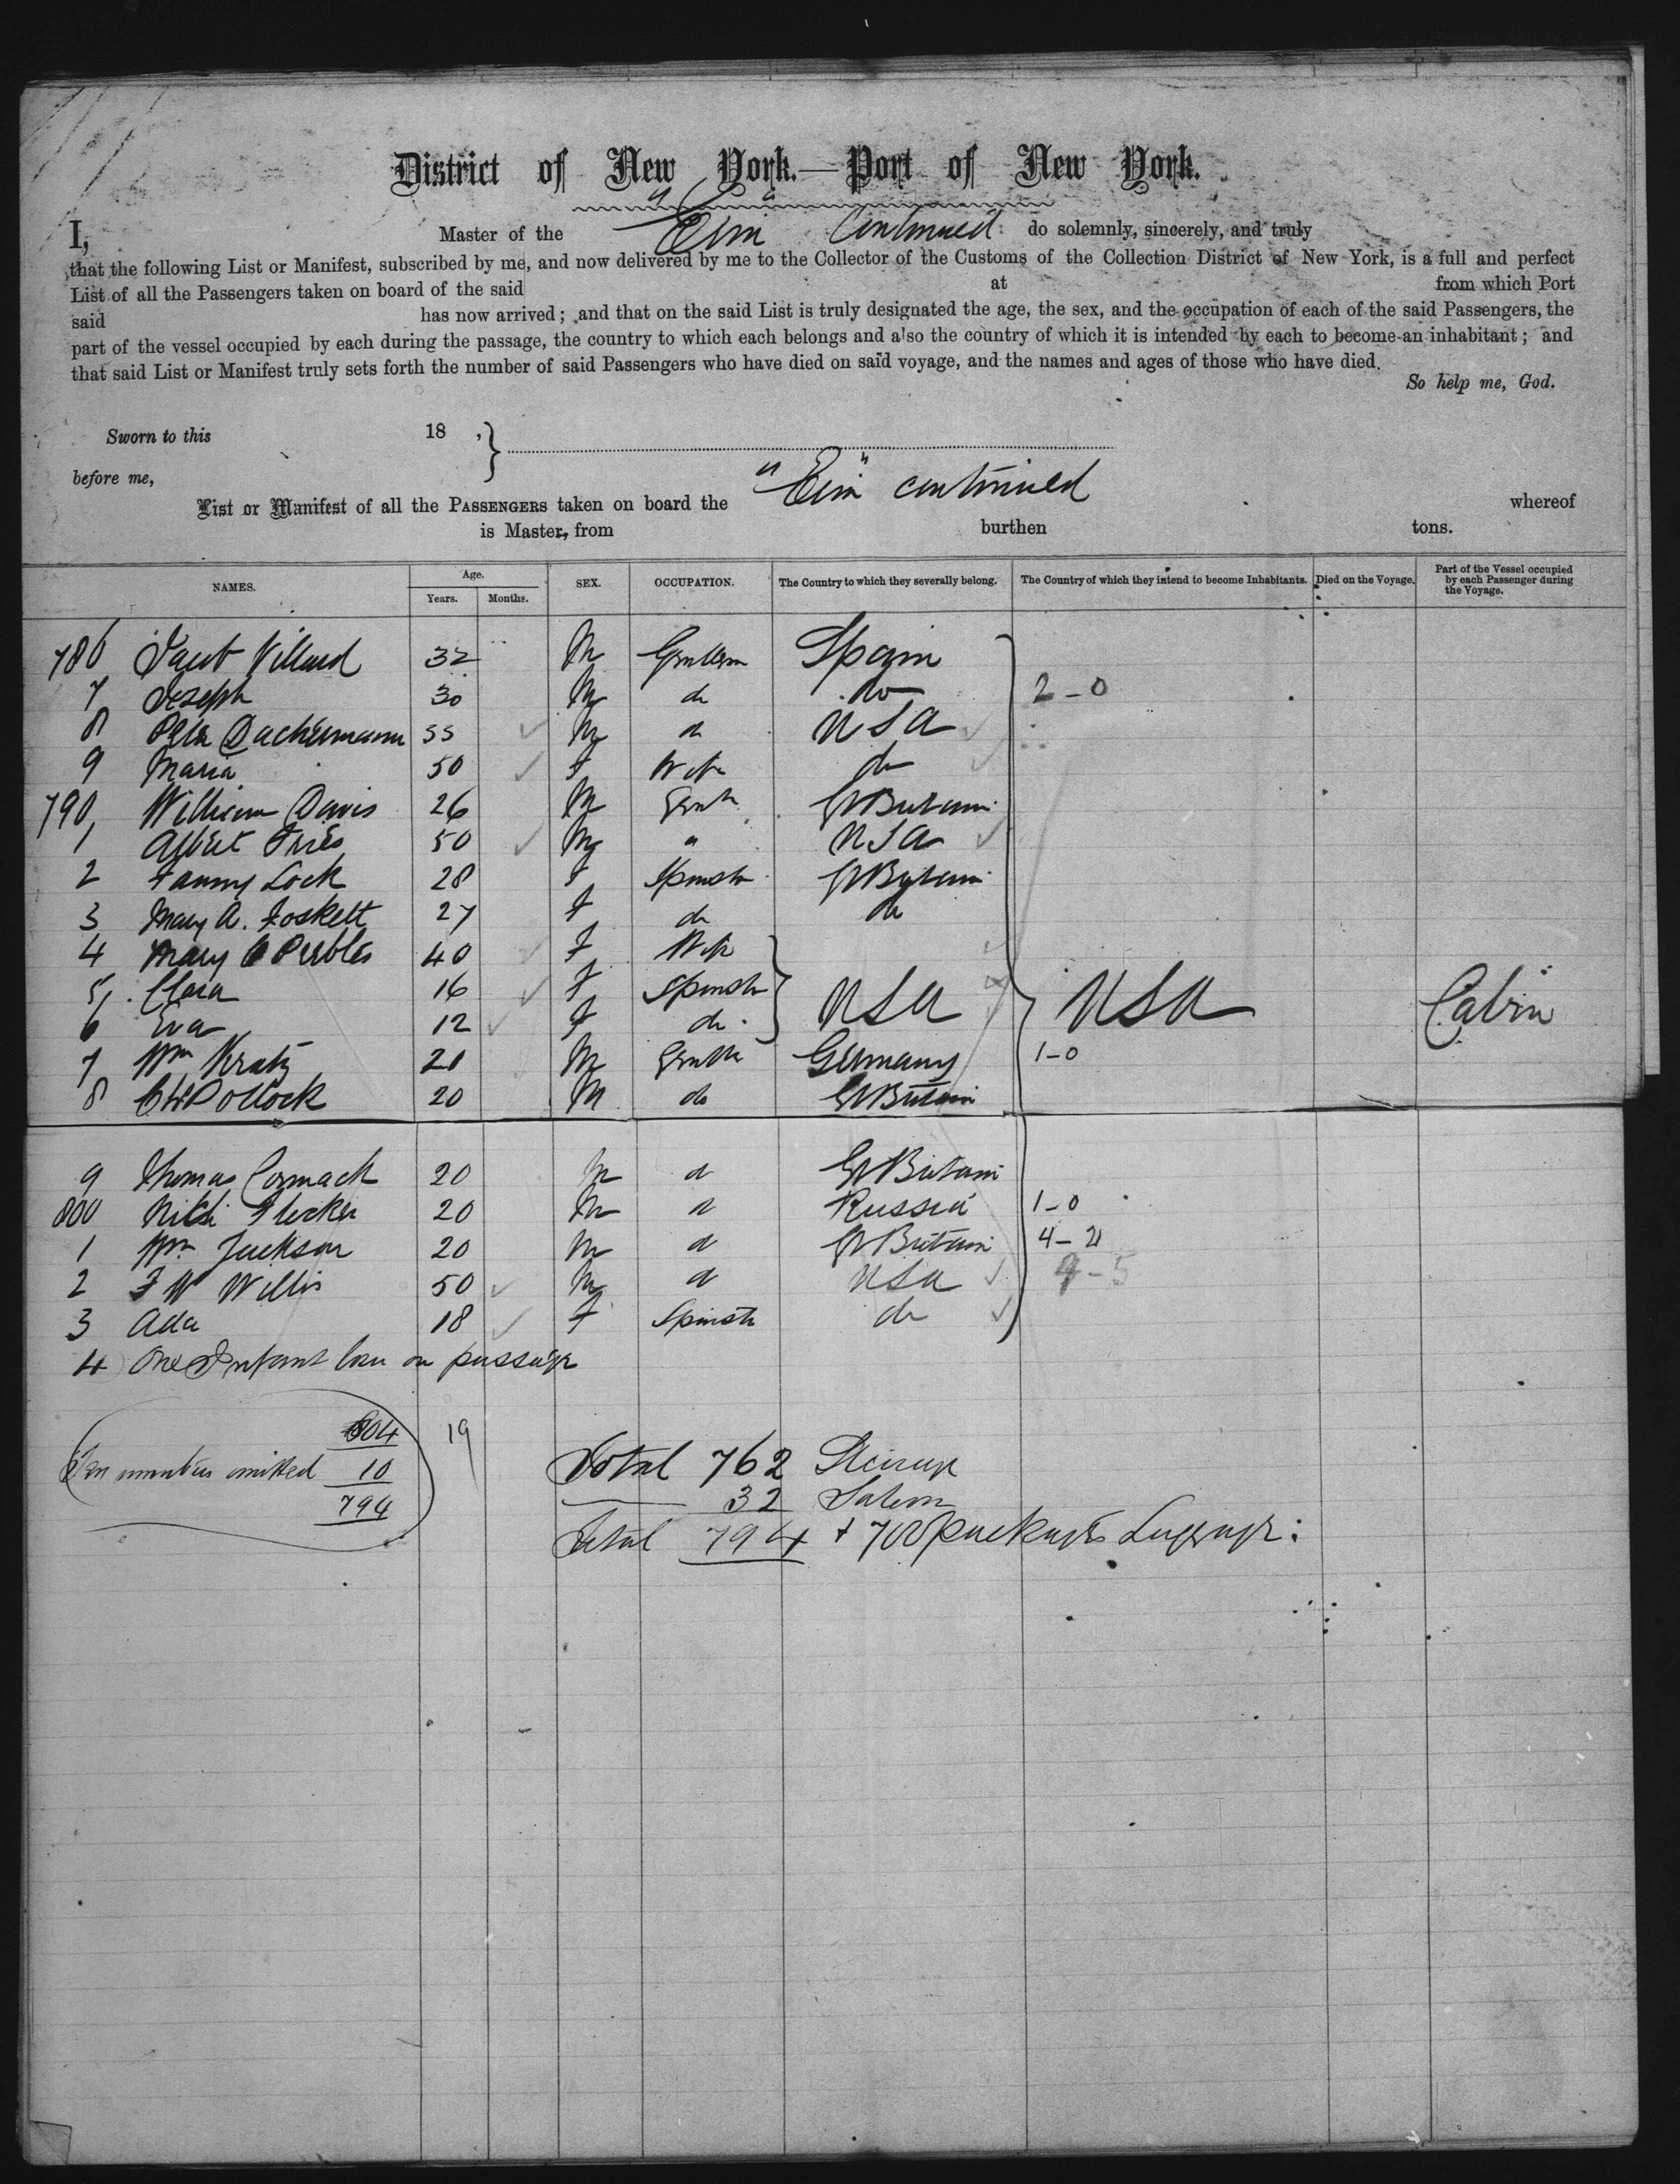 District of New York.—Port of New York.
I, Master of the "Erin" Continued do solemnly, sincerely, and truly
that the following List or Manifest, subscribed by me, and now delivered by me to the Collector of the Customs of the Collection District of New York, is a full and perfect
List of all the Passengers taken on board of the said at from which Port
said has now arrived; and that on the said List is truly designated the age, the sex, and the occupation of each of the said Passengers, the
part of the vessel occupied by each during the passage, the country to which each belongs and also the country of which it is intended by each to become an inhabitant; and
that said List or Manifest truly sets forth the number of said Passengers who have died on said voyage, and the names and ages of those who have died.
So help me, God.
Sworn to this 18 ,
before me,
List or Manifest of all the PASSENGERS taken on board the "Erin" continued whereof
is Master, from burthen tons.
NAMES. Age. Years. Months. SEX. OCCUPATION. The Country to which they severally belong. The Country of which they intend to become Inhabitants. Died on the Voyage. Part of the Vessel occupied by each Passenger during the Voyage.
786 Villard 32 M Spain
7 Joseph 30 M do do 2-0
8 55 M do USA
9 Maria 50 F Wife do
790 William Davis 26 M Gent Gt Britain
1 Albert Fries 50 M " USA
2 Fanny Lock 28 F Spinstr Gt Britain
3 Mary A. Foskett 27 F do do
4 Mary Peebles 40 F Wife
5 Clara 16 F Spinstr USA USA Cabin
6 Eva 12 F do
7 Wm Kratz 21 M Germany 1-0
8 Pollock 20 M do Gt Britain
9 Thomas Cormack 20 M d Gt Britain
800 20 M d Russia 1-0
1 Wm Jackson 20 M d Gt Britain 4-21
2 F W Willis 50 M d USA 9-5
3 Ada 18 F Spinstr do
4 One Infant born on passage
804 19
Ten numbers omitted 10
794
Total 762 Steerage
32 Saloon
Total 794 + 700 packages Luggage: